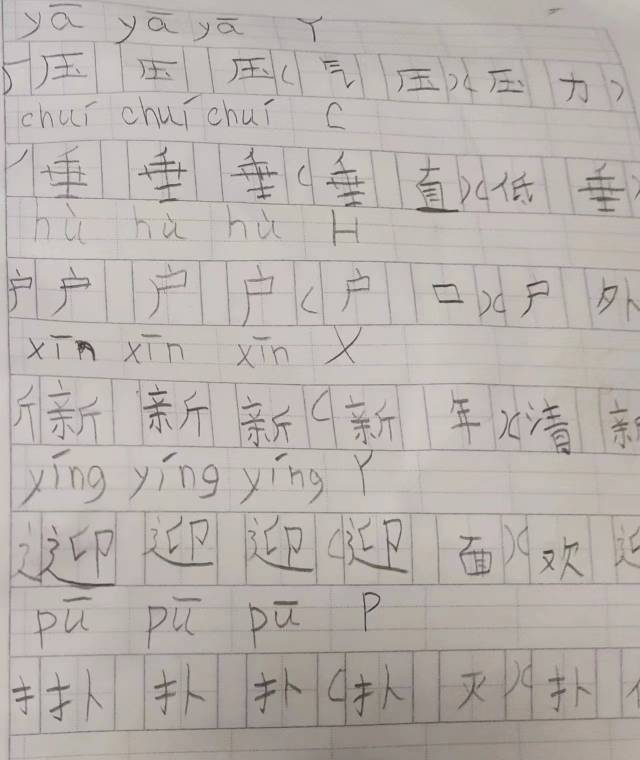 yā yā yā Y
压 压 压 ( 气 压 ) ( 压 力 )
chuí chuí chuí C
垂 垂 垂 ( 垂 直 ) ( 低 垂 )
hù hù hù H
户 户 户 户 ( 户 口 ) ( 户 外
xīn xīn xīn X
新 新 新 ( 新 年 ) ( 清 新
yíng yíng yíng Y
迎 迎 迎 ( 迎 面 ) ( 欢 迎
pū pū pū P
扑 扑 扑 ( 扑 灭 ) ( 扑